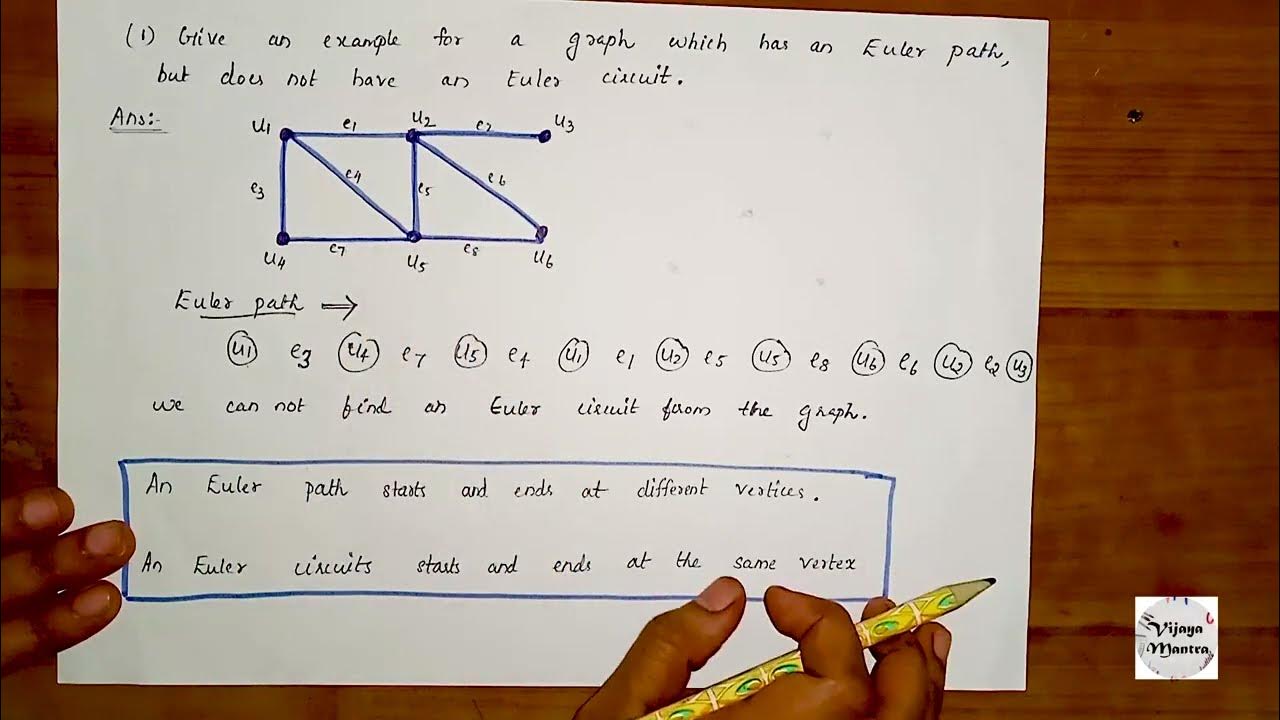 (1) Give an example for a graph which has an Euler path,
but does not have an Euler circuit.
Ans:-
u1 e1 u2 e2 u3
e3 e4 e5 e6
u4 e7 u5 e8 u6
Euler path →
u1 e3 u4 e7 u5 e4 u1 e1 u2 e5 u5 e8 u6 e6 u2 e2 u3
we can not find an Euler circuit from the graph.
An Euler path starts and ends at different vertices.
An Euler circuits starts and ends at the same vertex
Vijaya
Mantra